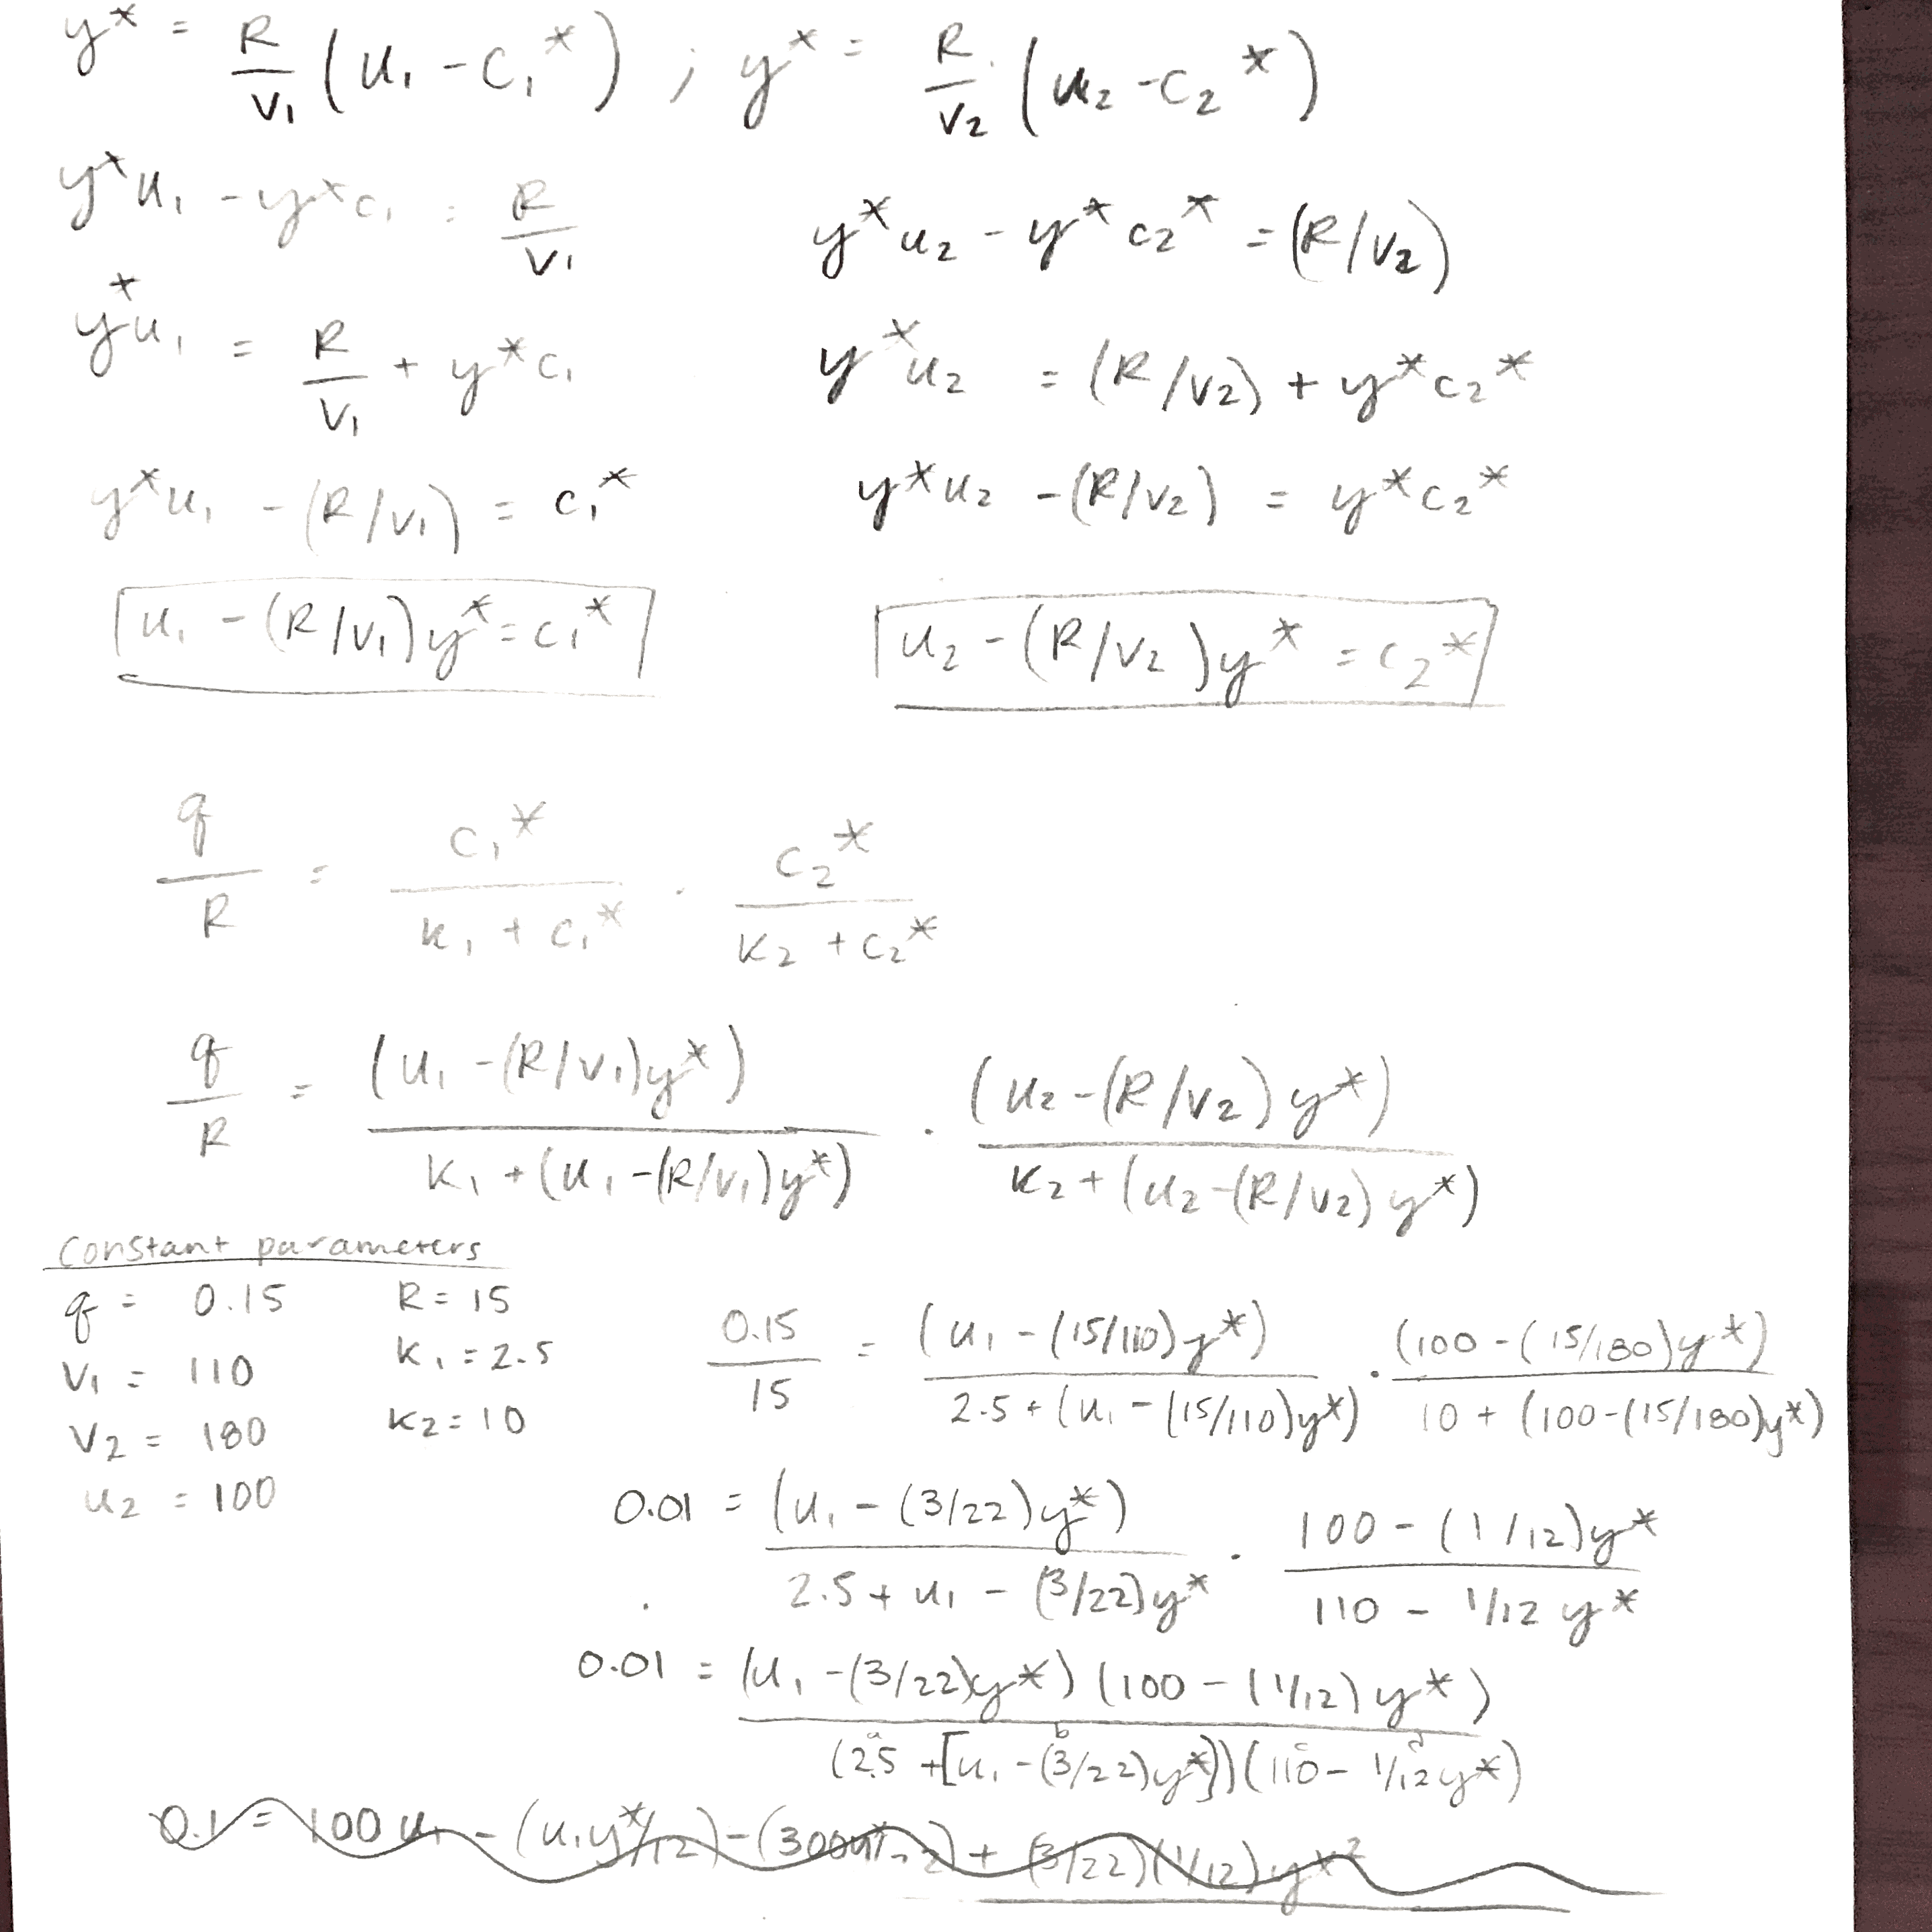 y* = R/v₁ (u₁ - c₁*) ; y* = R/v₂ (u₂ - c₂*)
y*u₁ - y*c₁ = R/v₁
y*u₂ - y*c₂* = (R/v₂)
y*u₁ = R/v₁ + y*c₁
y*u₂ = (R/v₂) + y*c₂*
y*u₁ - (R/v₁) = c₁*
y*u₂ - (R/v₂) = y*c₂*
u₁ - (R/v₁)y* = c₁*
u₂ - (R/v₂)y* = c₂*
q/R = c₁*/(k₁ + c₁*) · c₂*/(k₂ + c₂*)
q/R = (u₁ - (R/v₁)y*)/(k₁ + (u₁ - (R/v₁)y*)) · (u₂ - (R/v₂)y*)/(k₂ + (u₂ - (R/v₂)y*))
constant parameters
q = 0.15 R = 15
v₁ = 110 k₁ = 2.5
v₂ = 180 k₂ = 10
u₂ = 100
0.15/15 = (u₁ - (15/110)y*)/(2.5 + (u₁ - (15/110)y*)) · (100 - (15/180)y*)/(10 + (100 - (15/180)y*))
0.01 = (u₁ - (3/22)y*)/(2.5 + u₁ - (3/22)y*) · (100 - (1/12)y*)/(110 - 1/12 y*)
0.01 = (u₁ - (3/22)y*)(100 - (1/12)y*)/((2.5 + [u₁ - (3/22)y*])(110 - 1/12 y*))
a b c d
0.1 = 100u₁ - (u₁y*/12) - + (3/22)(1/12)y*²